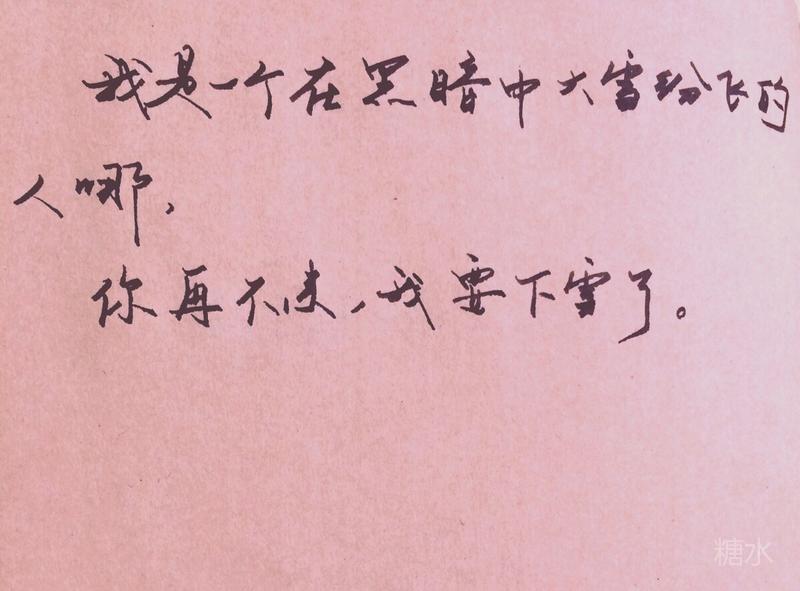 我是一个在黑暗中大雪纷飞的
人哪，
你再不来，我要下雪了。
糖水